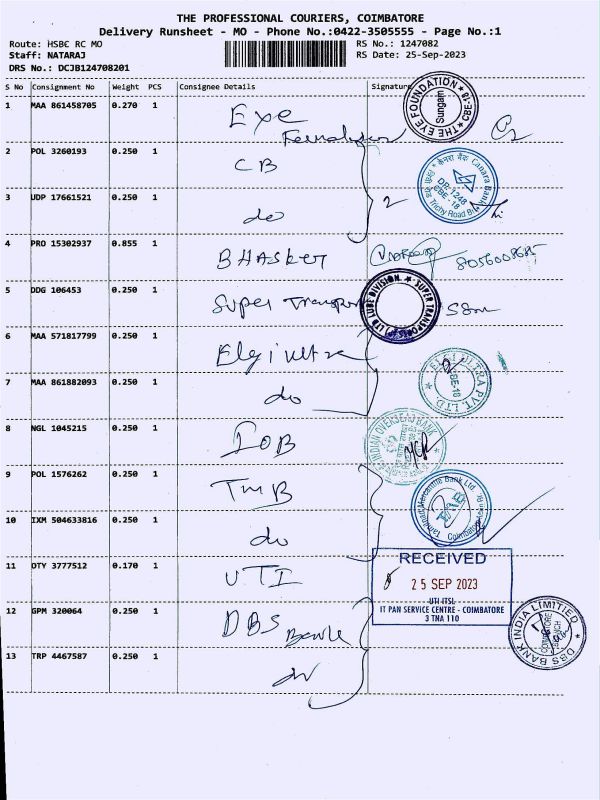 THE PROFESSIONAL COURIERS, COIMBATORE
Delivery Runsheet - MO - Phone No.:0422-3505555 - Page No.:1
Route: HSBC RC MO RS No.: 1247082
Staff: NATARAJ RS Date: 25-Sep-2023
DRS No.: DCJB124708201
S No Consignment No Weight PCS Consignee Details Signature
1 MAA 861458705 0.270 1 Eye Foundation
THE EYE FOUNDATION Sungam CBE-18
2 POL 3260193 0.250 1 CB
केनरा बैंक Canara Bank
DP-1248
CBE - 18
Trichy Road Br
3 UDP 17661521 0.250 1 do 2
4 PRO 15302937 0.855 1 BHASKER
5 DDG 106453 0.250 1 Super Transport
LUBE DIVISION ★ SUPER TRANSPORTS (P) LTD
6 MAA 571817799 0.250 1 Elgi ultra
ELGI ULTRA PVT. LTD.
CBE-18
7 MAA 861882093 0.250 1 do
8 NGL 1045215 0.250 1 IOB
INDIAN OVERSEAS BANK
9 POL 1576262 0.250 1 TMB
Tamilnad Mercantile Bank Ltd
Coimbatore
10 IXM 504633816 0.250 1 do
11 OTY 3777512 0.170 1 UTI
RECEIVED
25 SEP 2023
UTI ITSL
IT PAN SERVICE CENTRE - COIMBATORE
3 TNA 110
12 GPM 320064 0.250 1 DBS Bank
DBS BANK INDIA LIMITED
COIMBATORE
BRANCH
13 TRP 4467587 0.250 1 do